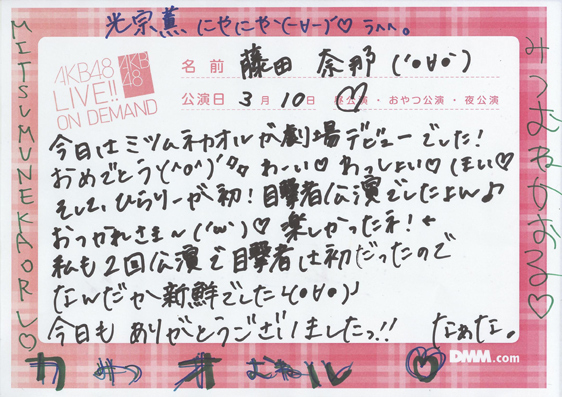 光宗薫 にやにやか(-∀-)♡ うへへ。
MITSUMUNEKAORU♡
みつむねかおる♡
AKB48
LIVE!!
ON DEMAND
AKB
48
名前 藤田 奈那 ('∀')
公演日 3月10日 昼公演・おやつ公演・夜公演
今日はミツムネカオルが劇場デビューでした!
おめでとう(^o^) わーい♡わっしょい♡ほい♡
そして、ひらりーが初!目撃者公演でしたよん♪
おつかれさま〜('ω')♡ 楽しかったネ!
私も2回公演で目撃者は初だったので
なんだか新鮮でした(°∀°)♪
今日もありがとうございましたっ!! なぁな。
DMM.com